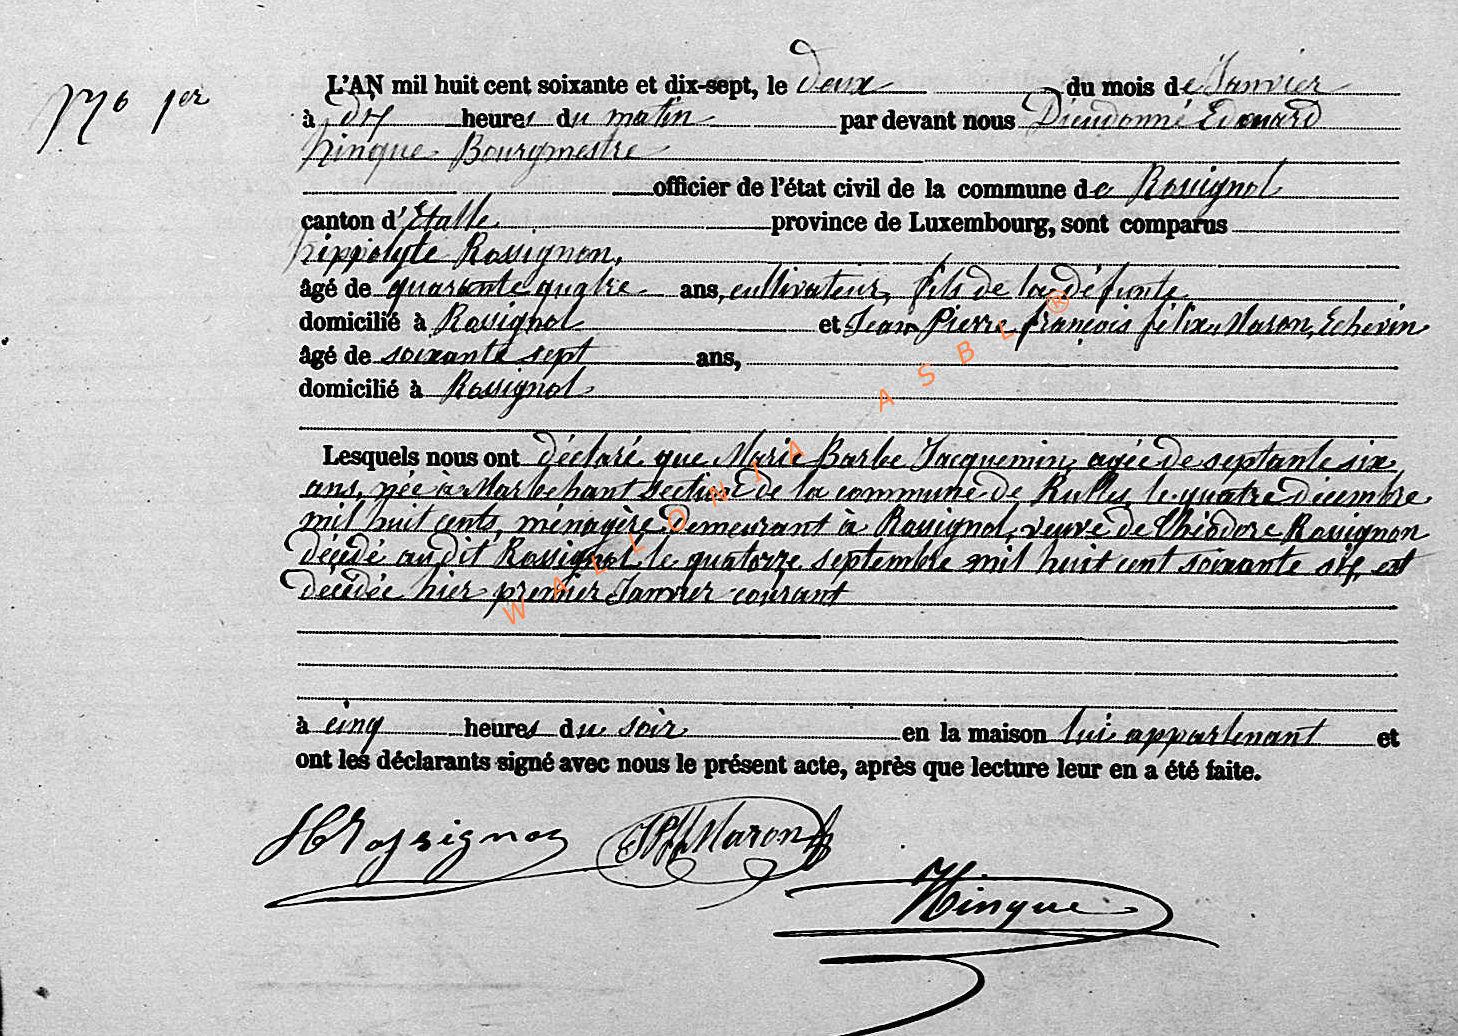 No 1er
L'AN mil huit cent soixante et dix-sept, le deux du mois de Janvier
à dix heures du matin par devant nous Dieudonné Edouard
Hinque Bourgmestre
officier de l'état civil de la commune de Rossignol
canton d'Etalle province de Luxembourg, sont comparus
hippolyte Rossignon,
âgé de quarante quatre ans, cultivateur, fils de la défunte
domicilié à Rossignol et Jean Pierre françois félix Maron, Echevin
âgé de soixante sept ans,
domicilié à Rossignol
Lesquels nous ont déclaré que Marie Barbe Jacquemin, agée de septante six
ans, née à Marbehant section de la commune de Rulles, le quatre décembre
mil huit cents, ménagère demeurant à Rossignol, veuve de théodore Rossignon
décédé audit Rossignol le quatorze septembre mil huit cent soixante six, est
décédée hier premier Janvier courant
à cinq heures du soir en la maison lui appartenant et
ont les déclarants signé avec nous le présent acte, après que lecture leur en a été faite.
HRossignon JPff Maron
Hinque
WALLONIA ASBL ®